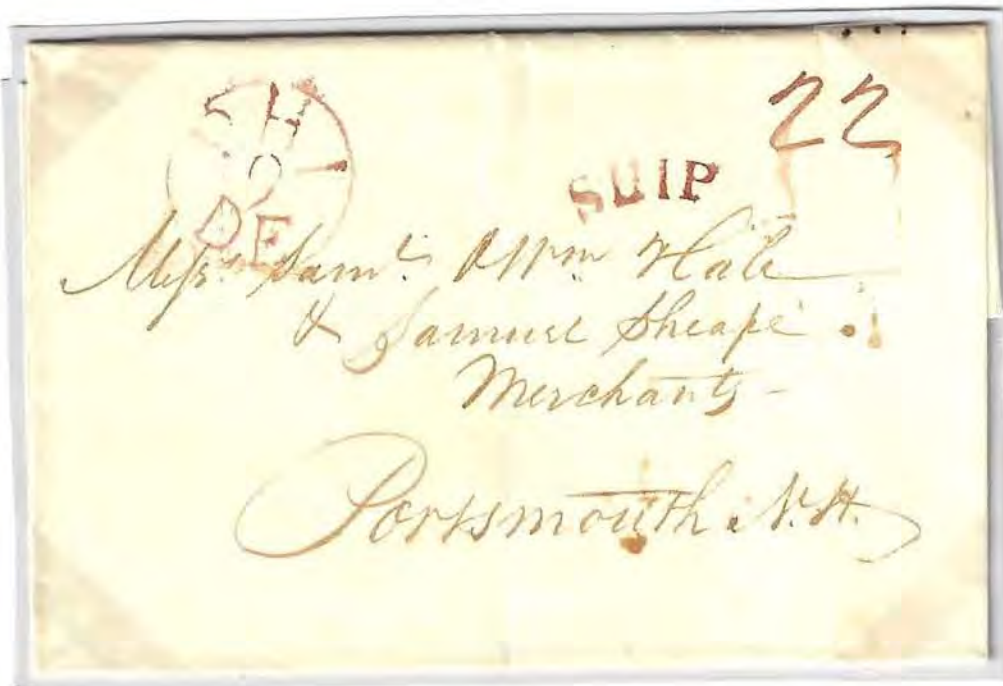 22
SHIP
Messrs. Saml. & Wm Hale
& Samuel Sheafe
Merchants -
Portsmouth. N.H.